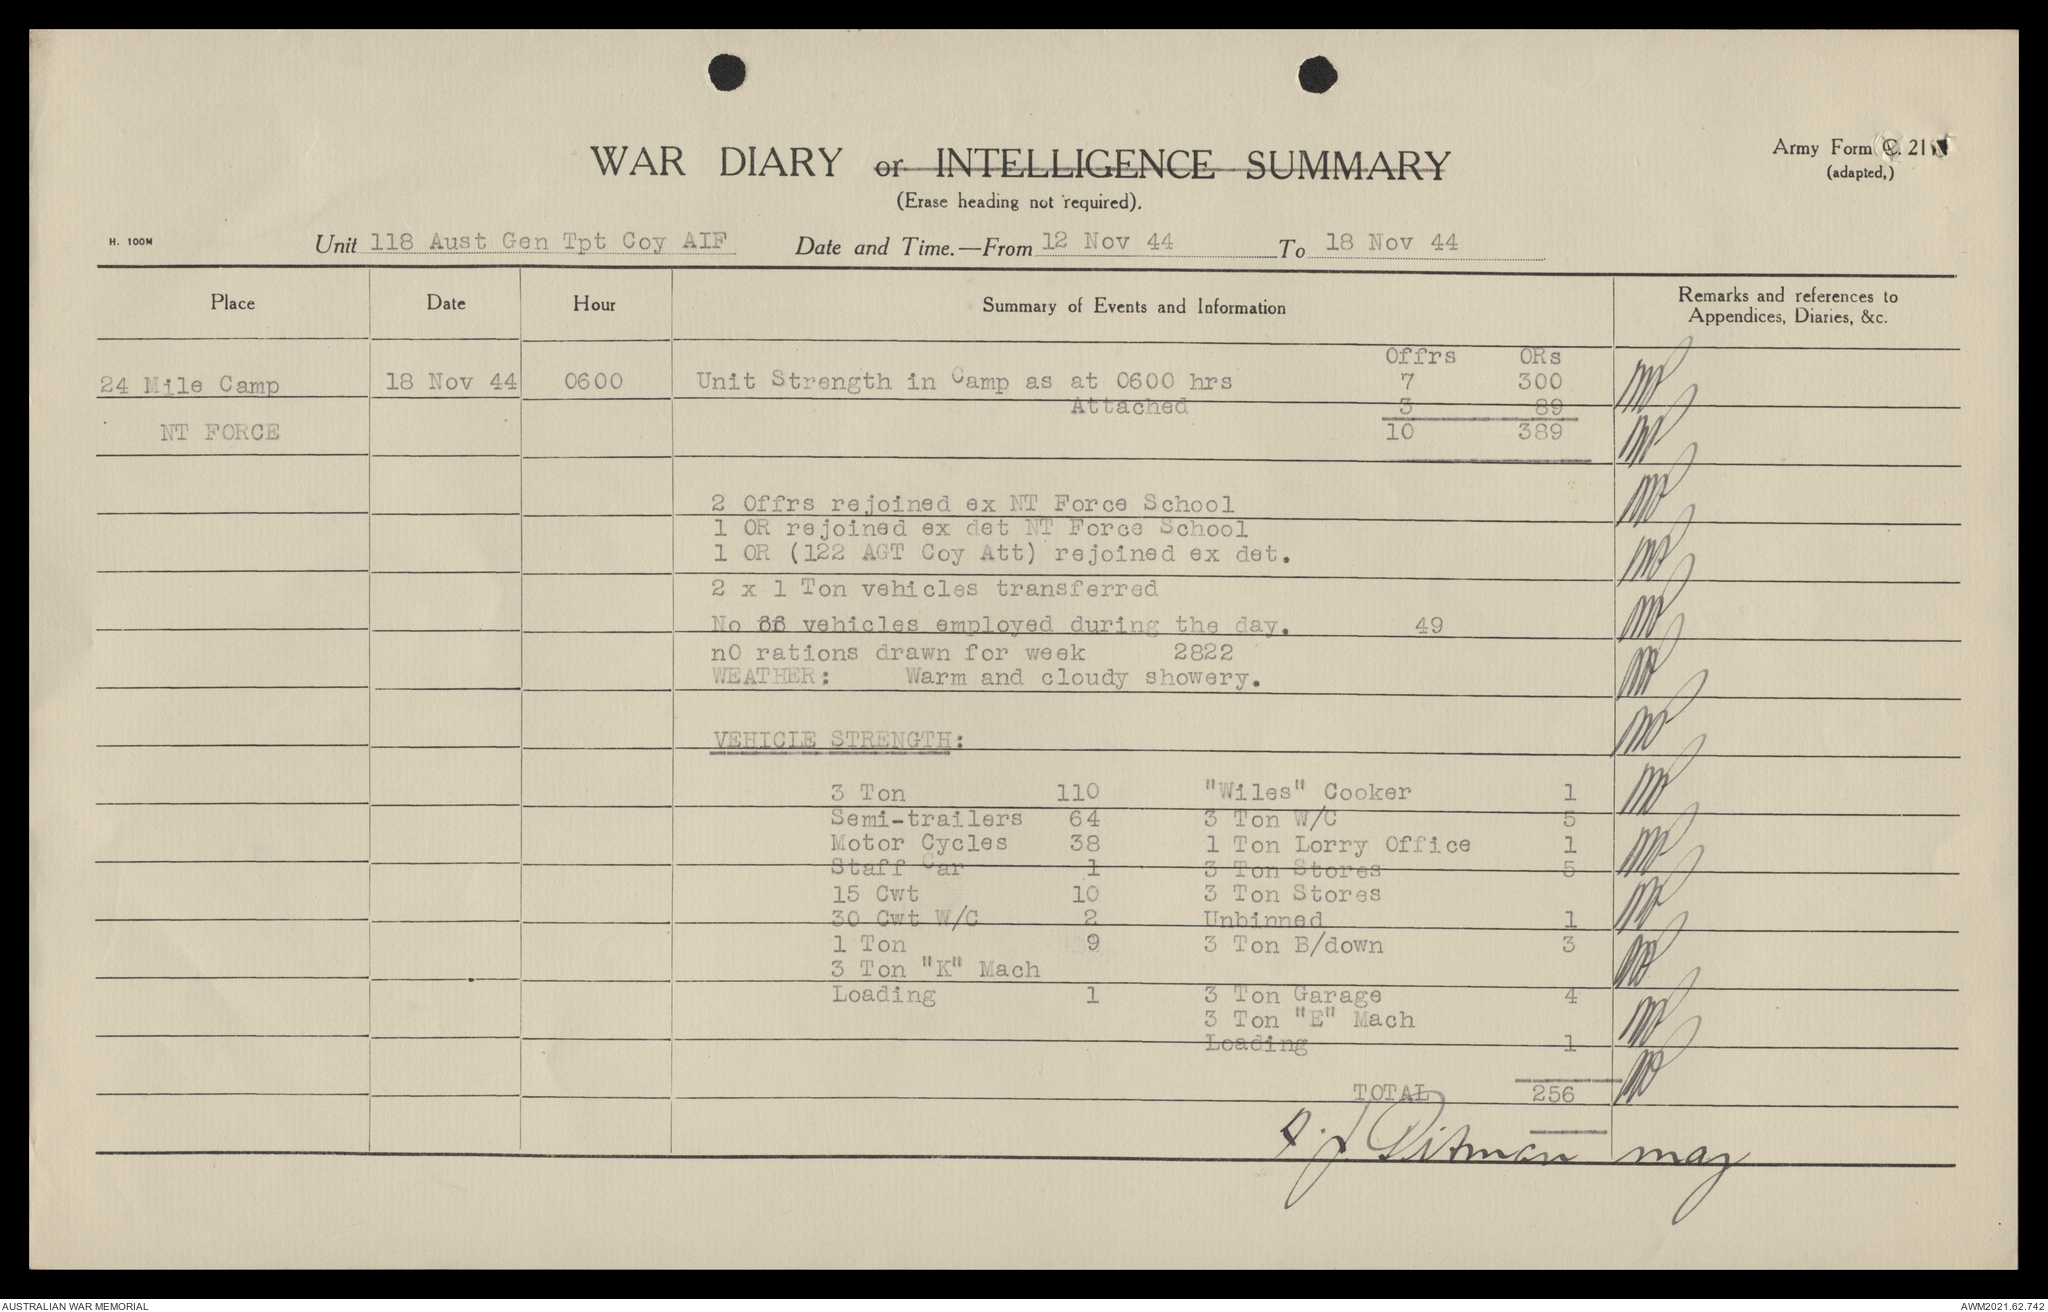 WAR DIARY or INTELLIGENCE SUMMARY
(Erase heading not required).
Army Form C. 21
(adapted,)
H. 100M
Unit 118 Aust Gen Tpt Coy AIF Date and Time.—From 12 Nov 44 To 18 Nov 44
Place Date Hour Summary of Events and Information Remarks and references to
Appendices, Diaries, &c.
Offrs ORs
24 Mile Camp 18 Nov 44 0600 Unit Strength in Camp as at 0600 hrs 7 300
Attached 3 89
NT FORCE 10 389
2 Offrs rejoined ex NT Force School
1 OR rejoined ex det NT Force School
1 OR (122 AGT Coy Att) rejoined ex det.
2 x 1 Ton vehicles transferred
No vehicles employed during the day. 49
nO rations drawn for week 2822
WEATHER: Warm and cloudy showery.
VEHICLE STRENGTH:
3 Ton 110 "Wiles" Cooker 1
Semi-trailers 64 3 Ton W/C 5
Motor Cycles 38 1 Ton Lorry Office 1
Staff Car 1 3 Ton Stores 5
15 Cwt 10 3 Ton Stores
30 Cwt W/C 2 Unbinned 1
1 Ton 9 3 Ton B/down 3
3 Ton "K" Mach
Loading 1 3 Ton Garage 4
3 Ton "E" Mach
Loading 1
TOTAL 256
Pitman maj
AUSTRALIAN WAR MEMORIAL AWM2021.62.742